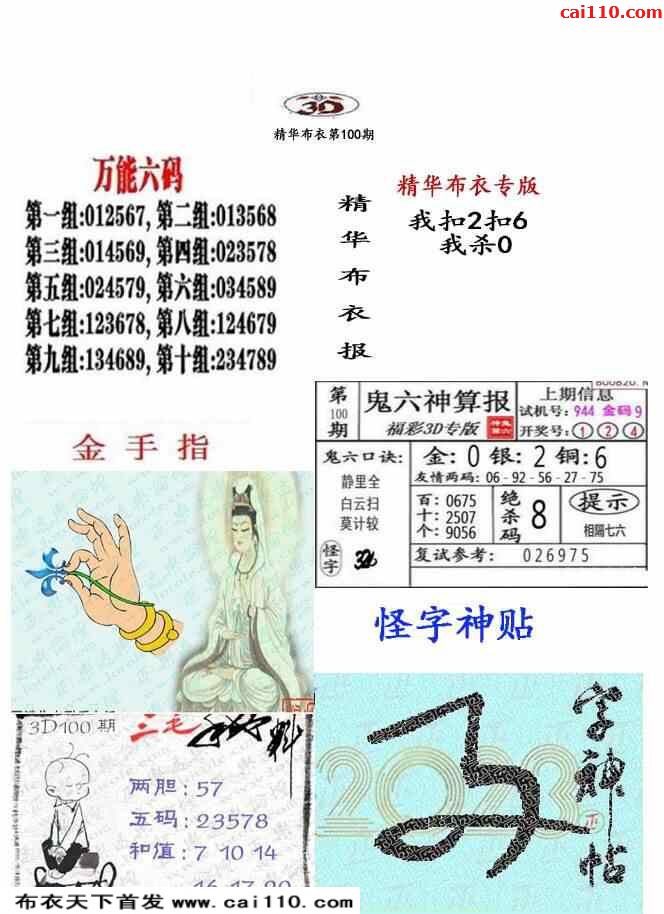 cai110.com
3D
精华布衣第100期
万能六码
第一组:012567,第二组:013568
第三组:014569,第四组:023578
第五组:024579,第六组:034589
第七组:123678,第八组:124679
第九组:134689,第十组:234789
精华布衣报
精华布衣专版
我扣2扣6
我杀0
金手指
第100期
鬼六神算报
福彩3D专版
上期信息
试机号:944 金码9
开奖号:①②④
鬼六口诀:
静里全
白云扫
莫计较
金:0 银:2 铜:6
友情两码:06-92-56-27-75
百:0675
十:2507
个:9056
绝杀码
8
提示
相隔七六
怪字
复试参考: 026975
怪字神贴
3D100期
三毛
两胆:57
五码:23578
和值:7 10 14
2023
字神帖
布衣天下首发 www.cai110.com